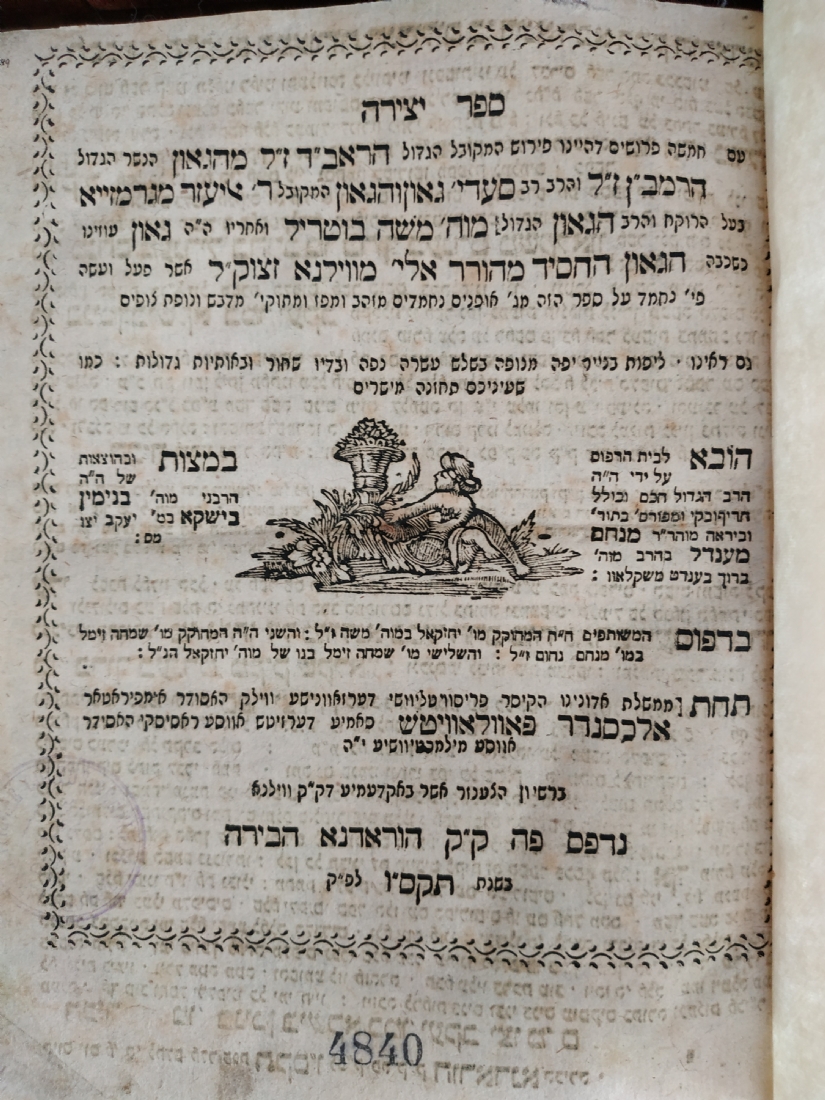 ספר יצירה
עם חמשה פרושים דהיינו פירוש המקובל הגדול הראב״ד ז״ל מהגאון הנשר הגדול
הרמב״ן ז״ל והרב רב סעדי׳ גאון והגאון המקובל ר׳ אליעזר מגרמזייא
בעל הרוקח והרב הגאון הגדול מוה׳ משה בוטריל ואחריו ה״ה גאון עוזינו
כשכבה הגאון החסיד מהורר אלי׳ מווילנא זצוק״ל אשר פעל ועשה
פי׳ נחמד על ספר הזה מג׳ אופנים נחמדים מזהב ומפז ומתוקי׳ מדבש ונופת צופים
גם ראינו · ליפות בנייר יפה מנופה בשלש עשרה נפה ובדיו שחור ובאותיות גדולות : כמו
שעיניכם תחזנה מישרים
הובא לבית הדפוס
על ידי ה״ה
הרב הגדול חכם וכולל
חריף ובקי ומפורס׳ בתור׳
וביראה מוהר״ר מנחם
מענדל בהרב מוה׳
ברוך בענדט משקלאוו :
במצות ובהוצאות
של ה״ה
הרבני מוה׳ בנימין
בישקא במ׳ יעקב יצו
מס :
בדפוס המשותפים ה״ה המחוקק מו׳ יחזקאל במוה׳ משה ז״ל : והשני ה״ה המחוקק מו׳ שמחה זימל
במו׳ מנחם נחום ז״ל : והשלישי מו׳ שמחה זימל בנו של מוה׳ יחזקאל הנ״ל :
תחת ממשלת אדונינו הקיסר פריסוועטליישי דערזאווניישע וועליקי האסודר אימפיראטאר
אלכסנדר פאוולאוויטש סאמיע דערזיטש אווסע ראסיסקי האסודר
אווסע מילםטיוושיע י״ה
ברשיון הצענזר אשר באקדעמיע דק״ק ווילנא
נדפס פה ק״ק הוראדנא הבירה
בשנת תקס״ו לפ״ק
4840